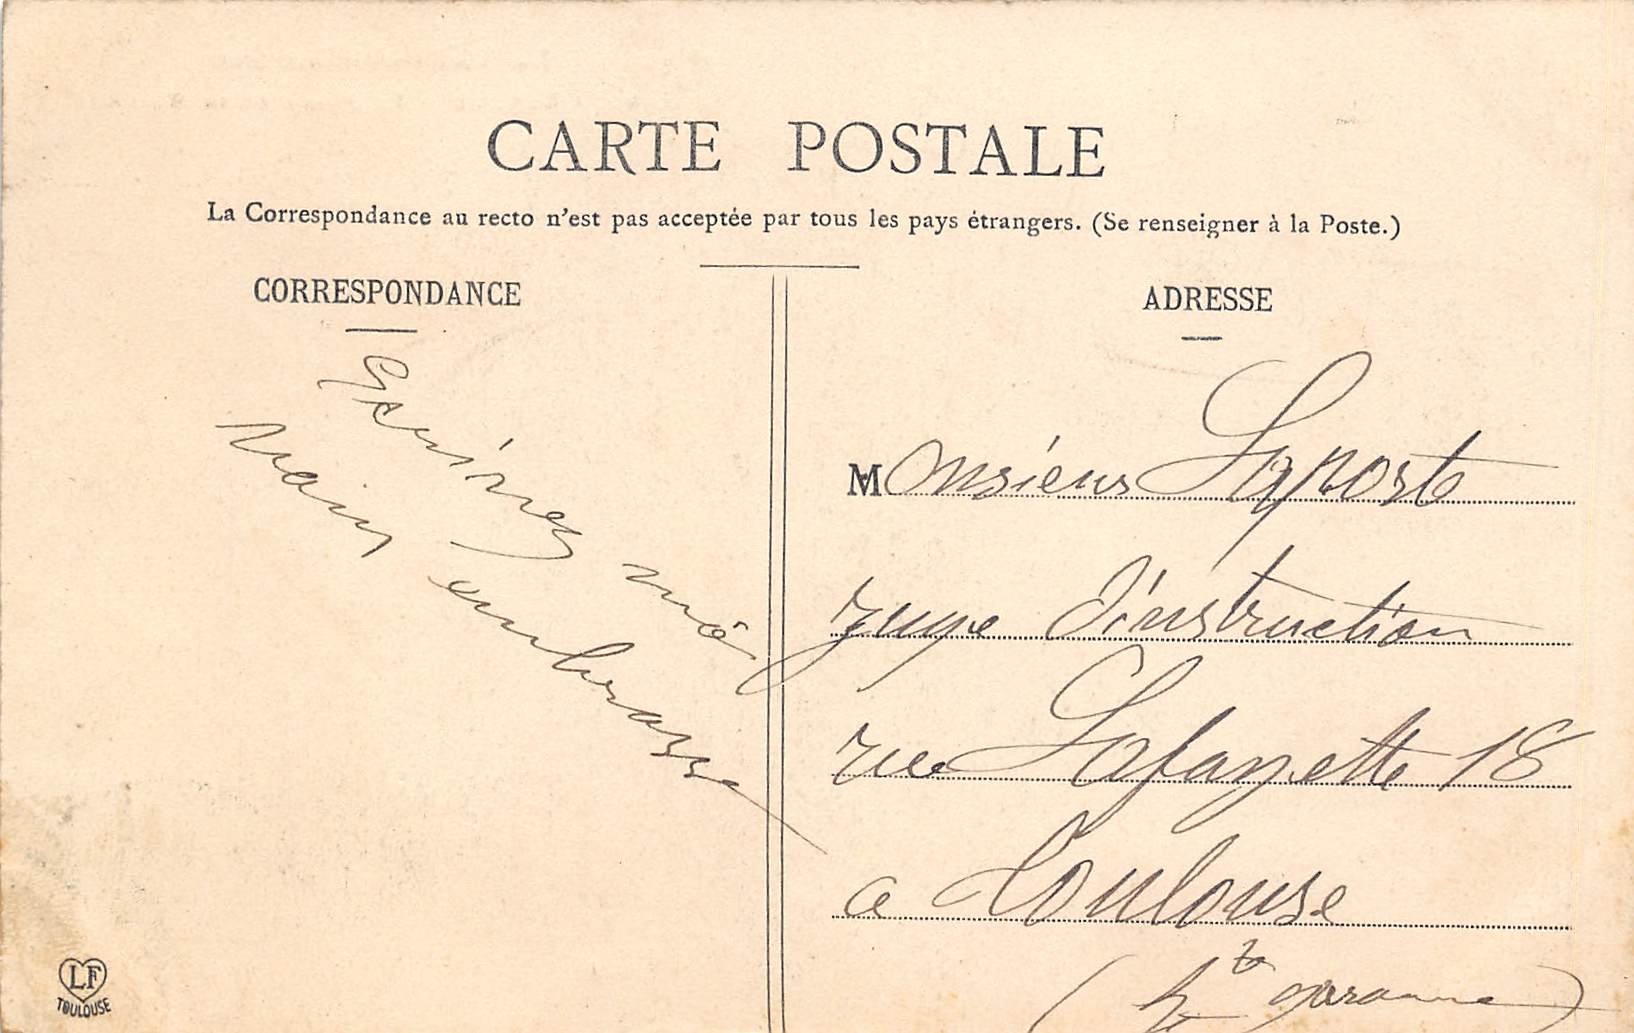 CARTE POSTALE
La Correspondance au recto n'est pas acceptée par tous les pays étrangers. (Se renseigner à la Poste.)
CORRESPONDANCE
moi
embrasse
ADRESSE
Monsieur Laporte
juge d'instruction
rue Lafayette 18
a Toulouse
(Hte Garonne)
LF
TOULOUSE